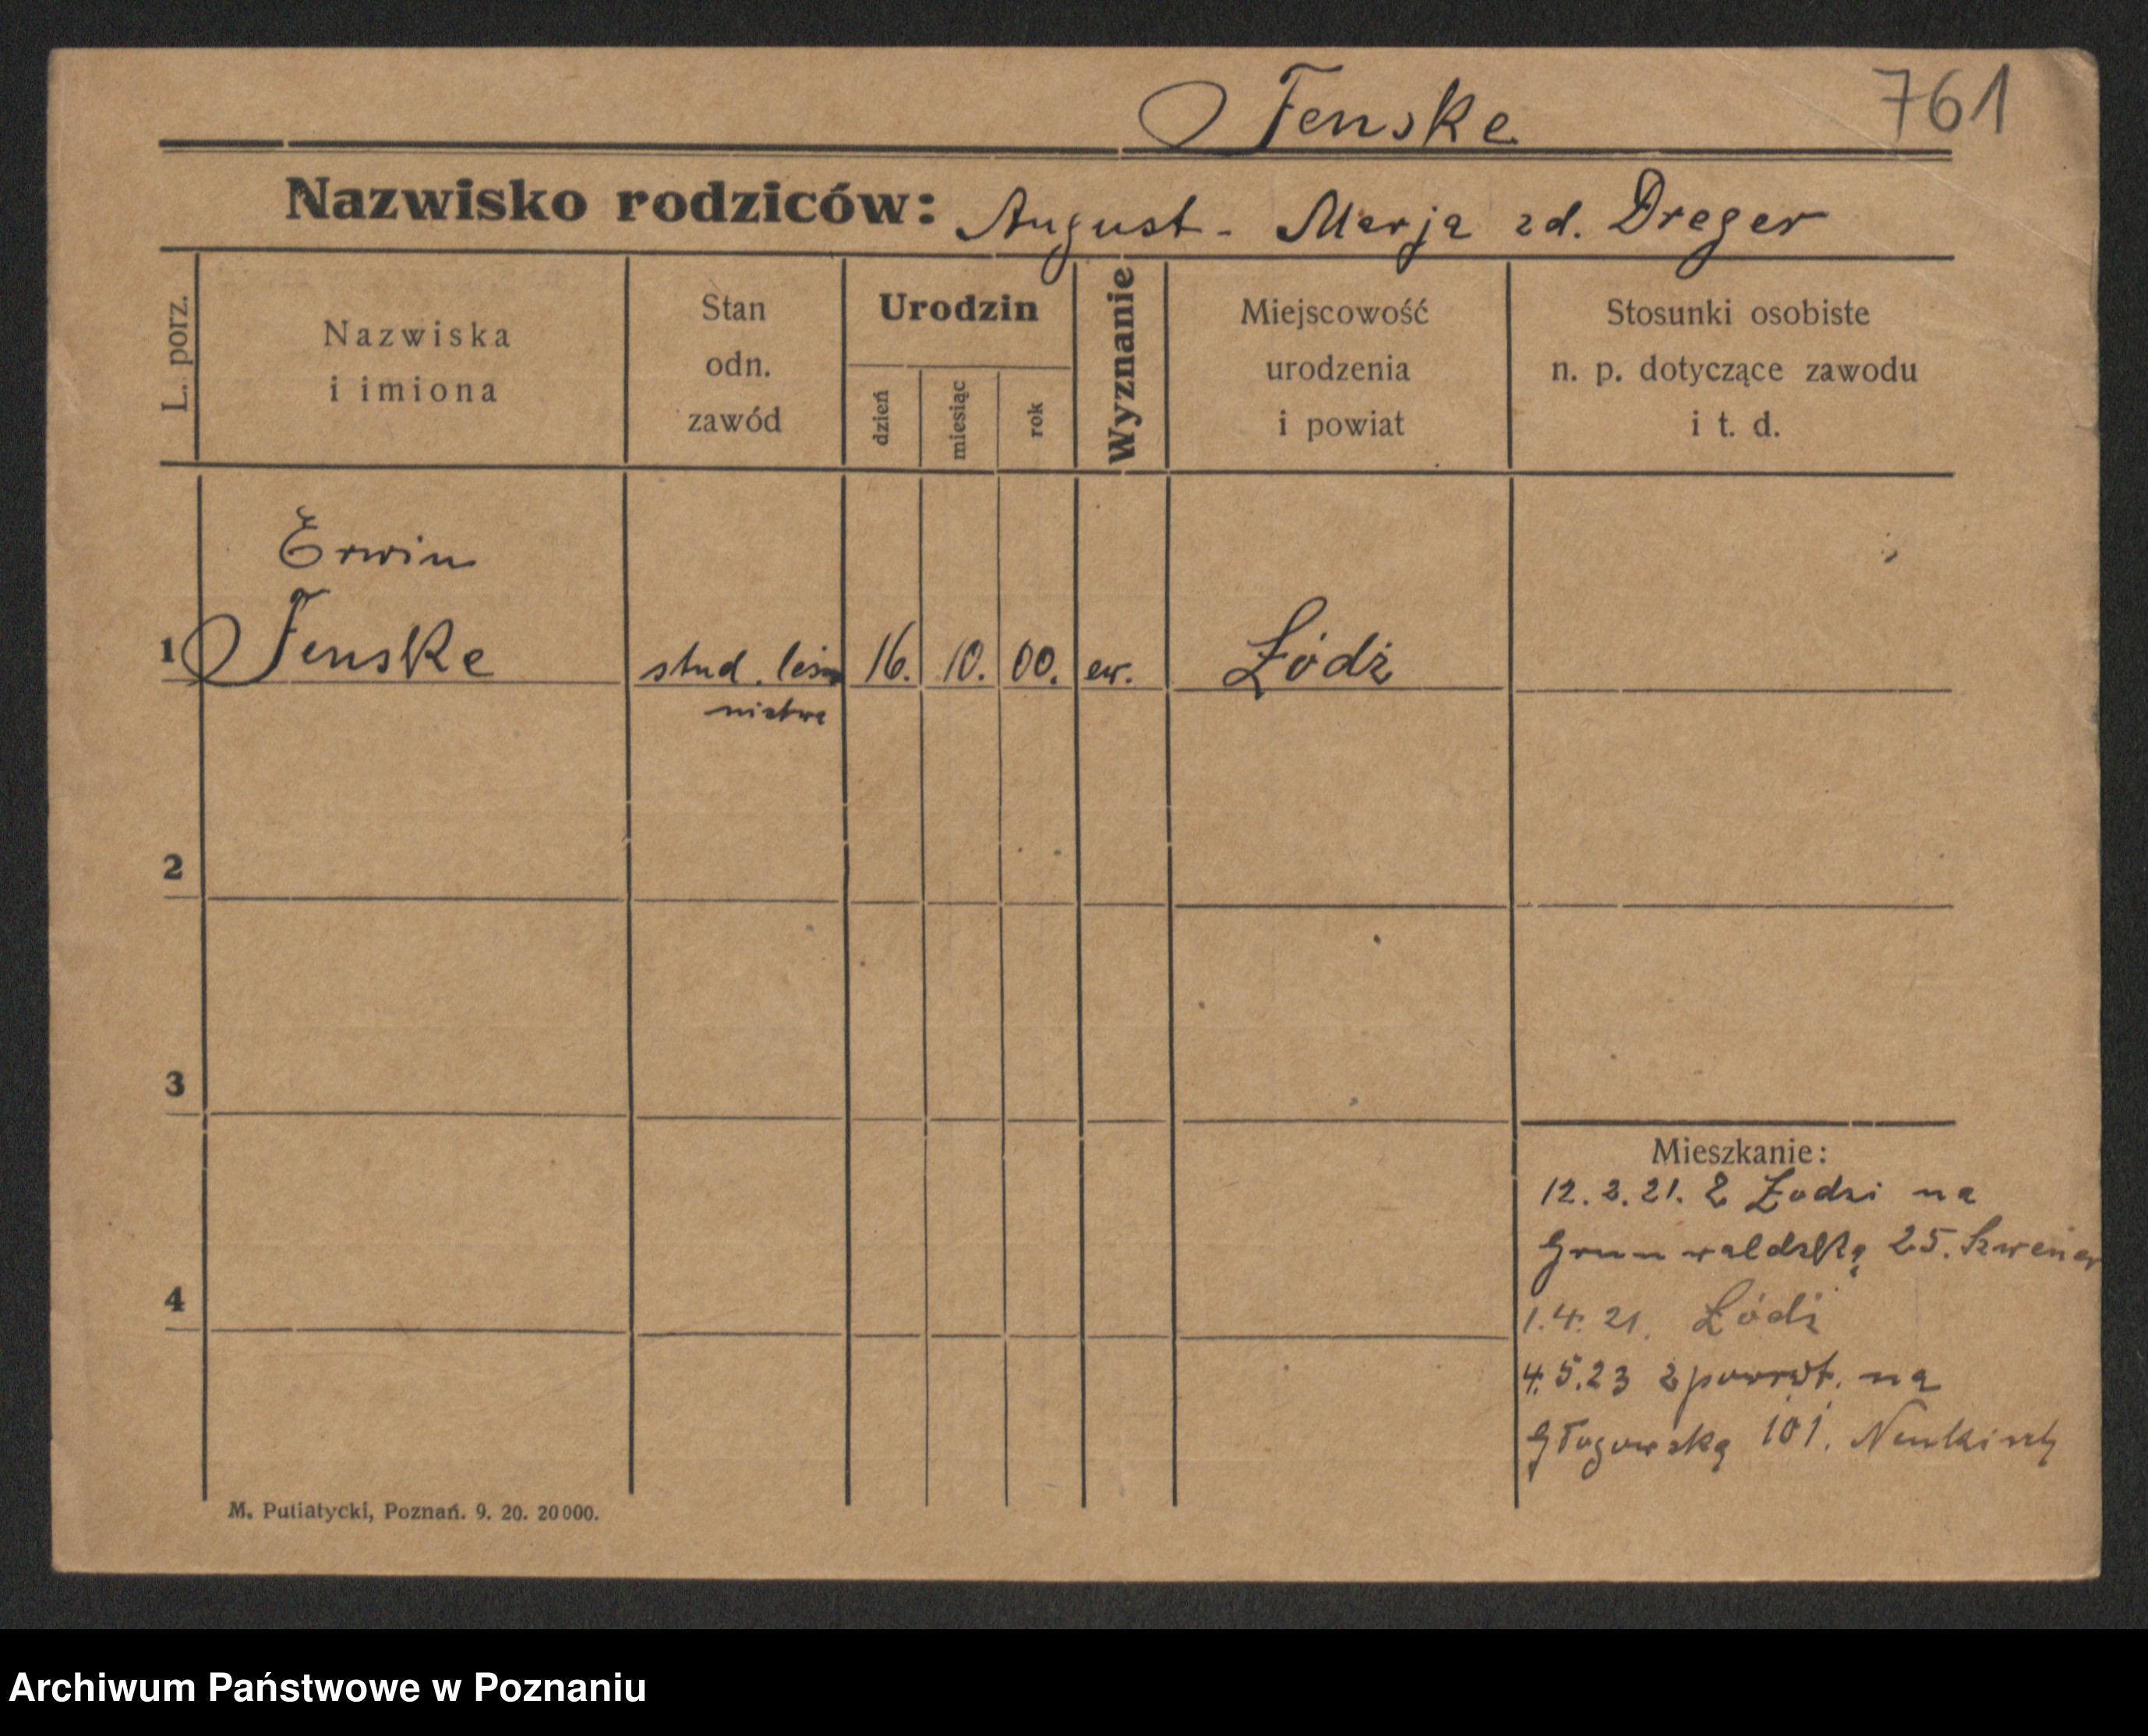 Fenske 761
Nazwisko rodziców: August - Marja zd. Dreger
L. porz.
Nazwiska
i imiona
Stan
odn.
zawód
Urodzin
dzień
miesiąc
rok
Wyznanie
Miejscowość
urodzenia
i powiat
Stosunki osobiste
n. p. dotyczące zawodu
i t. d.
Erwin
1 Fenske stud. leśn 16. 10. 00. ew. Łódź
nictwa
2
3
4
Mieszkanie:
12. 2. 21. z Łodzi na
Grunwaldzką 25.
1. 4. 21. Łódź
4. 5. 23 z powrot. na
Głogowską 101.
M. Putiatycki, Poznań. 9. 20. 20000.
Archiwum Państwowe w Poznaniu